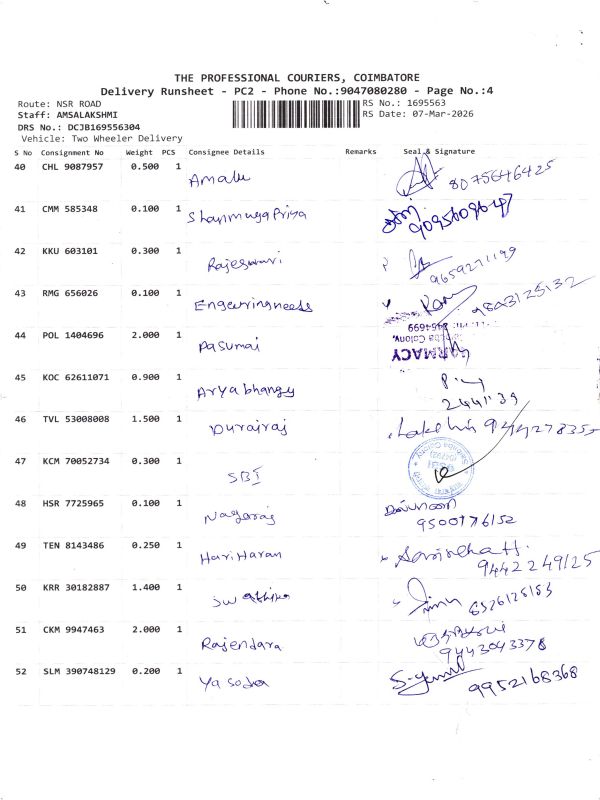 THE PROFESSIONAL COURIERS, COIMBATORE
Delivery Runsheet - PC2 - Phone No.:9047080280 - Page No.:4
Route: NSR ROAD RS No.: 1695563
Staff: AMSALAKSHMI RS Date: 07-Mar-2026
DRS No.: DCJB169556304
Vehicle: Two Wheeler Delivery
S No Consignment No Weight PCS Consignee Details Remarks Seal & Signature
40 CHL 9087957 0.500 1 Amalu 8075646425
41 CMM 585348 0.100 1 Shanmuga Priya
42 KKU 603101 0.300 1 Rajeswari 9659271199
43 RMG 656026 0.100 1 9803125132
44 POL 1404696 2.000 1 Pasumai
45 KOC 62611071 0.900 1
46 TVL 53008008 1.500 1 Durairaj
47 KCM 70052734 0.300 1 SBI
48 HSR 7725965 0.100 1 Nagaraj 9500176152
49 TEN 8143486 0.250 1 Hari Haran 9442249125
50 KRR 30182887 1.400 1 Swathika
51 CKM 9947463 2.000 1 Rajendara 9443043378
52 SLM 390748129 0.200 1 Yasodha 9952168368